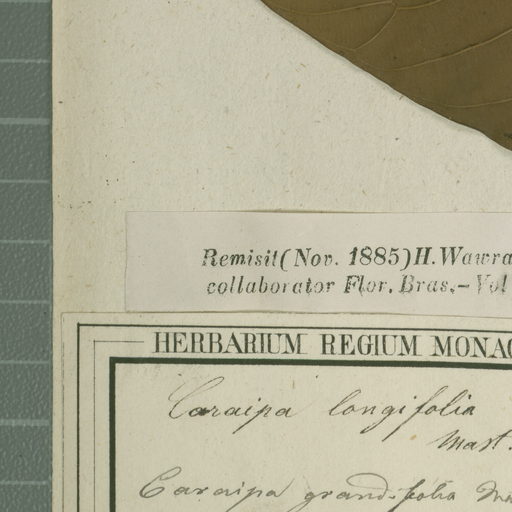 Remisit (Nov. 1885) H. Wawra
collaborator Flor. Bras. – Vol
HERBARIUM REGIUM MONAC
Caraipa longifolia
Mart.
Caraipa grandifolia